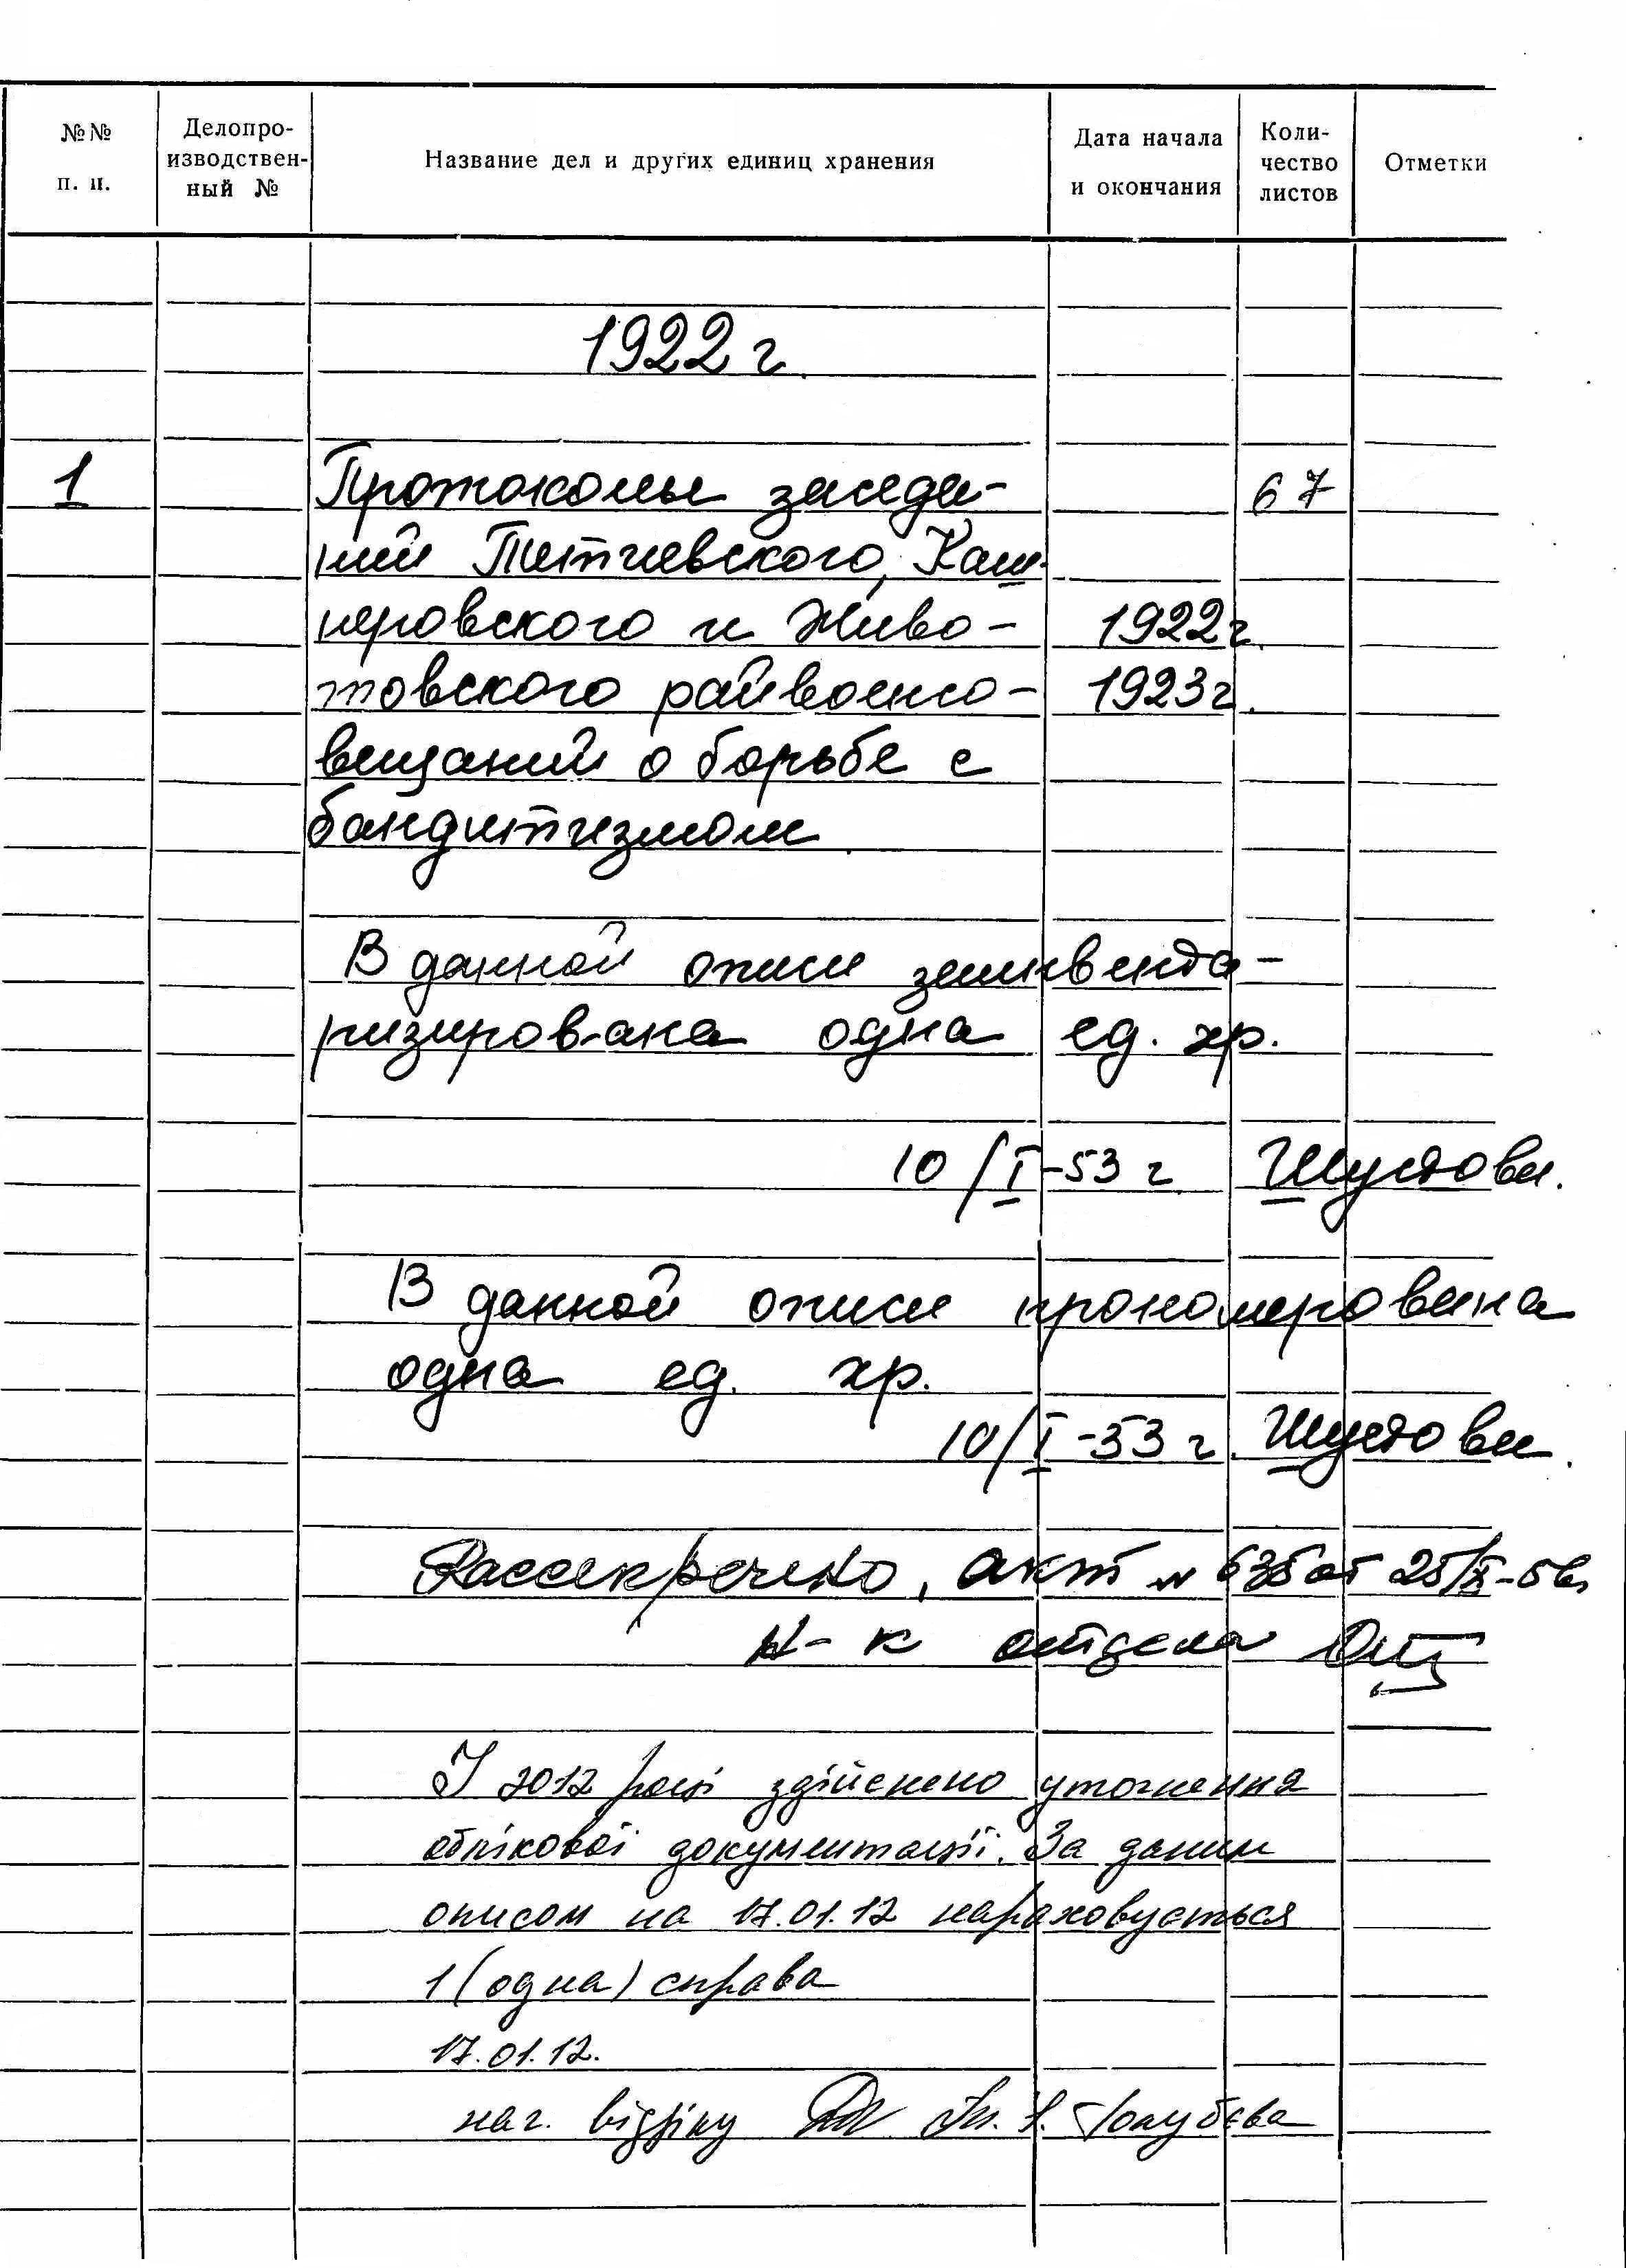 №№ п. п.
Делопро-
изводствен-
ный №
Название дел и других единиц хранения
Дата начала
и окончания
Коли-
чество
листов
Отметки
1922 г.
1 Протоколы заседа- 67
ний Тетиевского, Каш-
перовского и Живо- 1922 г.
товского райвоенсо- 1923 г.
вещаний о борьбе с
бандитизмом.
В данной описи заинвента-
ризирована одна ед. хр.
10/I-53 г. Шустова.
В данной описи прономерована
одна ед. хр.
10/I-53 г. Шустова.
Рассекречено, акт № 635 от 25/
Н-к отдела
У 2012 році здійснено уточнення
облікової документації. За даним
описом на 17.01.12 нараховується
1 (одна) справа
17.01.12.
нач. відділу